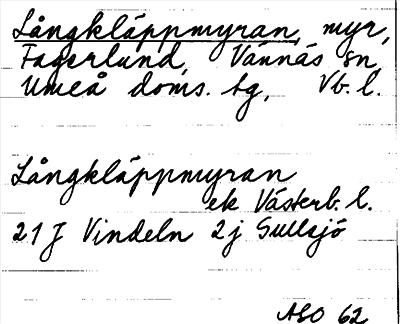 Långkläppmyran, myr,
Fagerlund, Vännäs sn,
Umeå doms. tg, Vb. l.
Långkläppmyran
ek Västerb. l.
21 J Vindeln 2 j Sullsjö
ASO 62